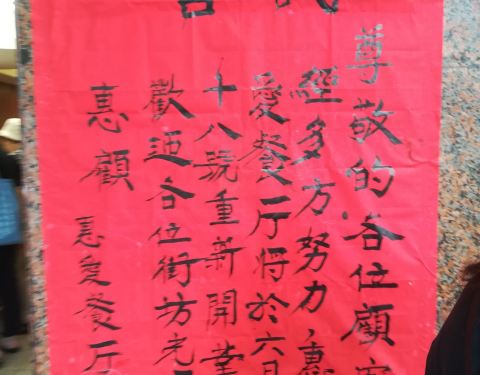 尊敬的各位顧客
經多方努力,惠
愛餐厅将於六月
十八號重新開業
歡迎各位街坊光
惠顧
惠爱餐厅